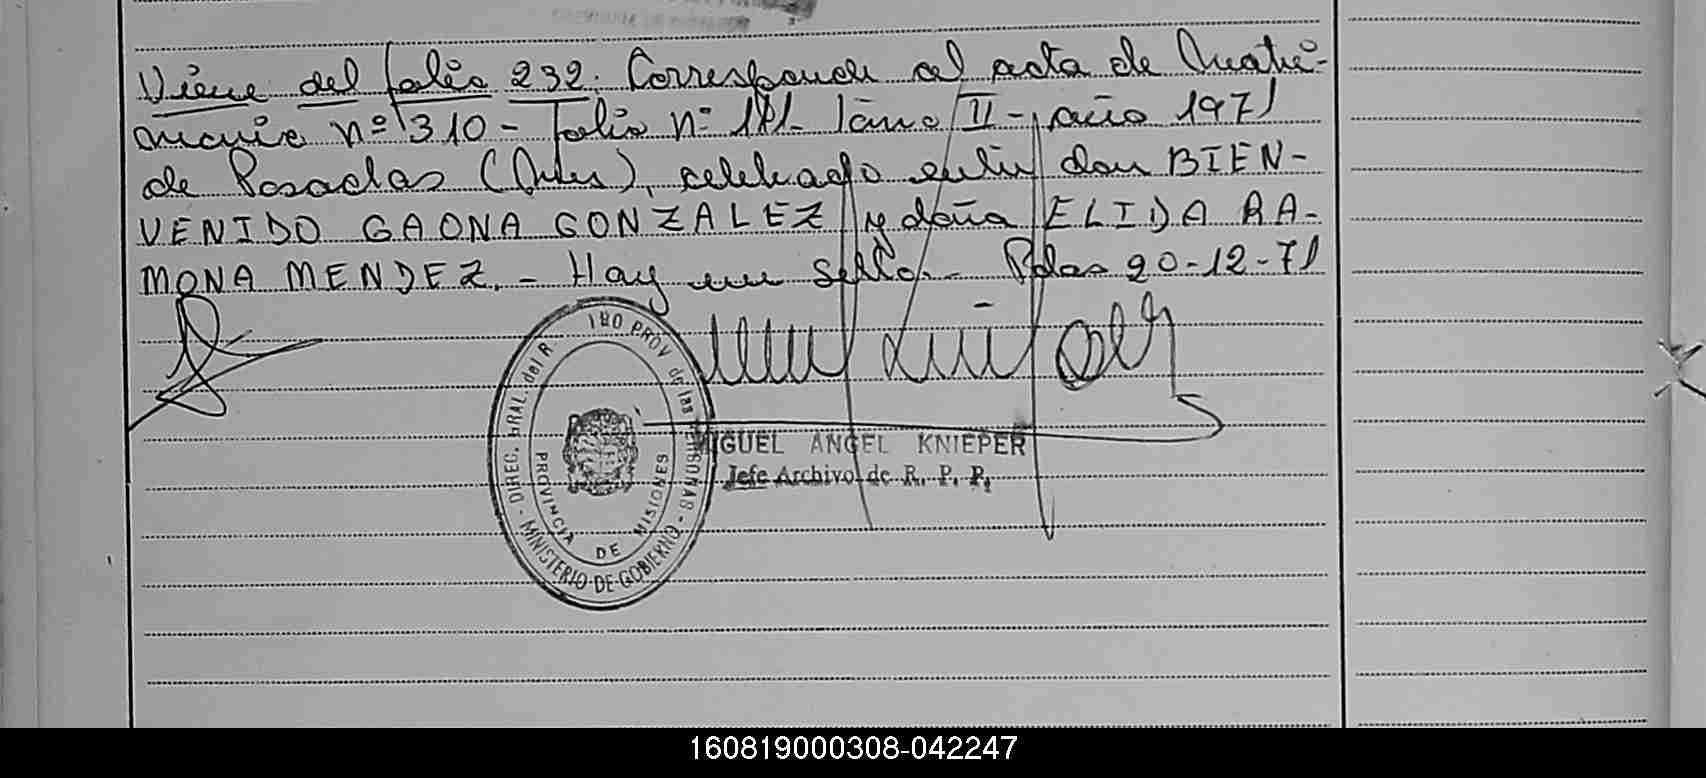 Viene del folio 232. Corresponde al acta de Matri-
monio nº 310 - Folio nº 181- Tomo II - año 1971
de Posadas (Mnes), celebrado entre don BIEN-
VENIDO GAONA GONZALEZ y doña ELIDA RA-
MONA MENDEZ. - Hay un sello. - Pdas 20-12-71
DIREC. GRAL. del R. PROV de las PERSONAS - MINISTERIO DE GOBIERNO -
PROVINCIA DE MISIONES
MIGUEL ANGEL KNIEPER
Jefe Archivo de R. P. P.
160819000308-042247